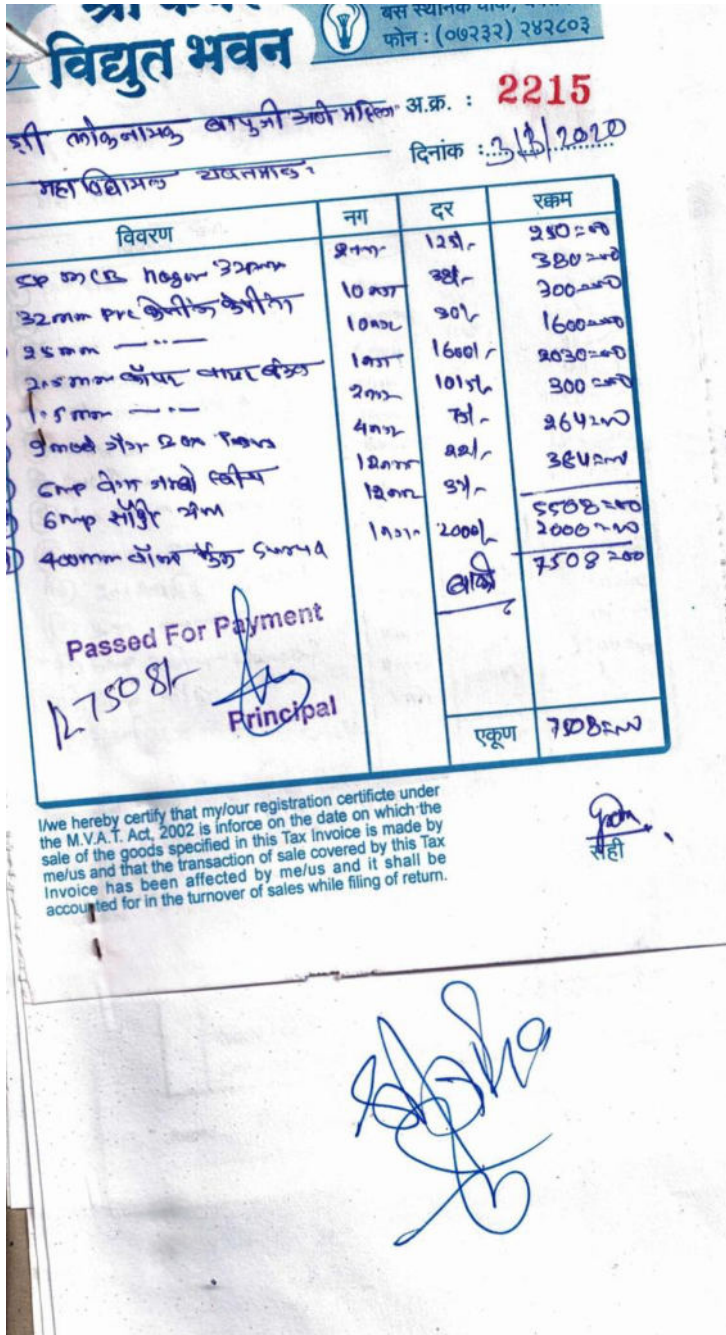 विद्युत भवन
बस स्थानक चौक,
फोन : (०७२३२) २४२८०३
अ.क्र. : 2215
श्री लोकनायक बापुजी अणे महिला
दिनांक : 3/3/2020
महाविद्यालय यवतमाळ.
विवरण नग दर रक्कम
SP MCB 32amp 2नग 125/- 250=00
32mm PVC 10नग 38/- 380=00
25mm —〃— 10नग 30/- 300=00
2.5mm कॉपर वायर बंडल 1नग 1600/- 1600=00
1.5mm —〃— 2नग 1015/- 2030=00
4नग 75/- 300=00
6mp 12नग 22/- 264=00
6mp सॉकेट 12नग 384=00
5508=00
400mm वॉल फॅन Surya 1नग 2000/- 2000=00
बाकी 7508=00
Passed For Payment
7508/-
Principal
एकूण 7508=00
I/we hereby certify that my/our registration certificte under
the M.V.A.T. Act, 2002 is inforce on the date on which the
sale of the goods specified in this Tax Invoice is made by
me/us and that the transaction of sale covered by this Tax
Invoice has been affected by me/us and it shall be
accounted for in the turnover of sales while filing of return.
सही